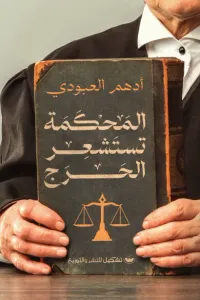 أدهم العبودي
المحكمة
تستشعر
الحرج
تشكيل للنشر والتوزيع